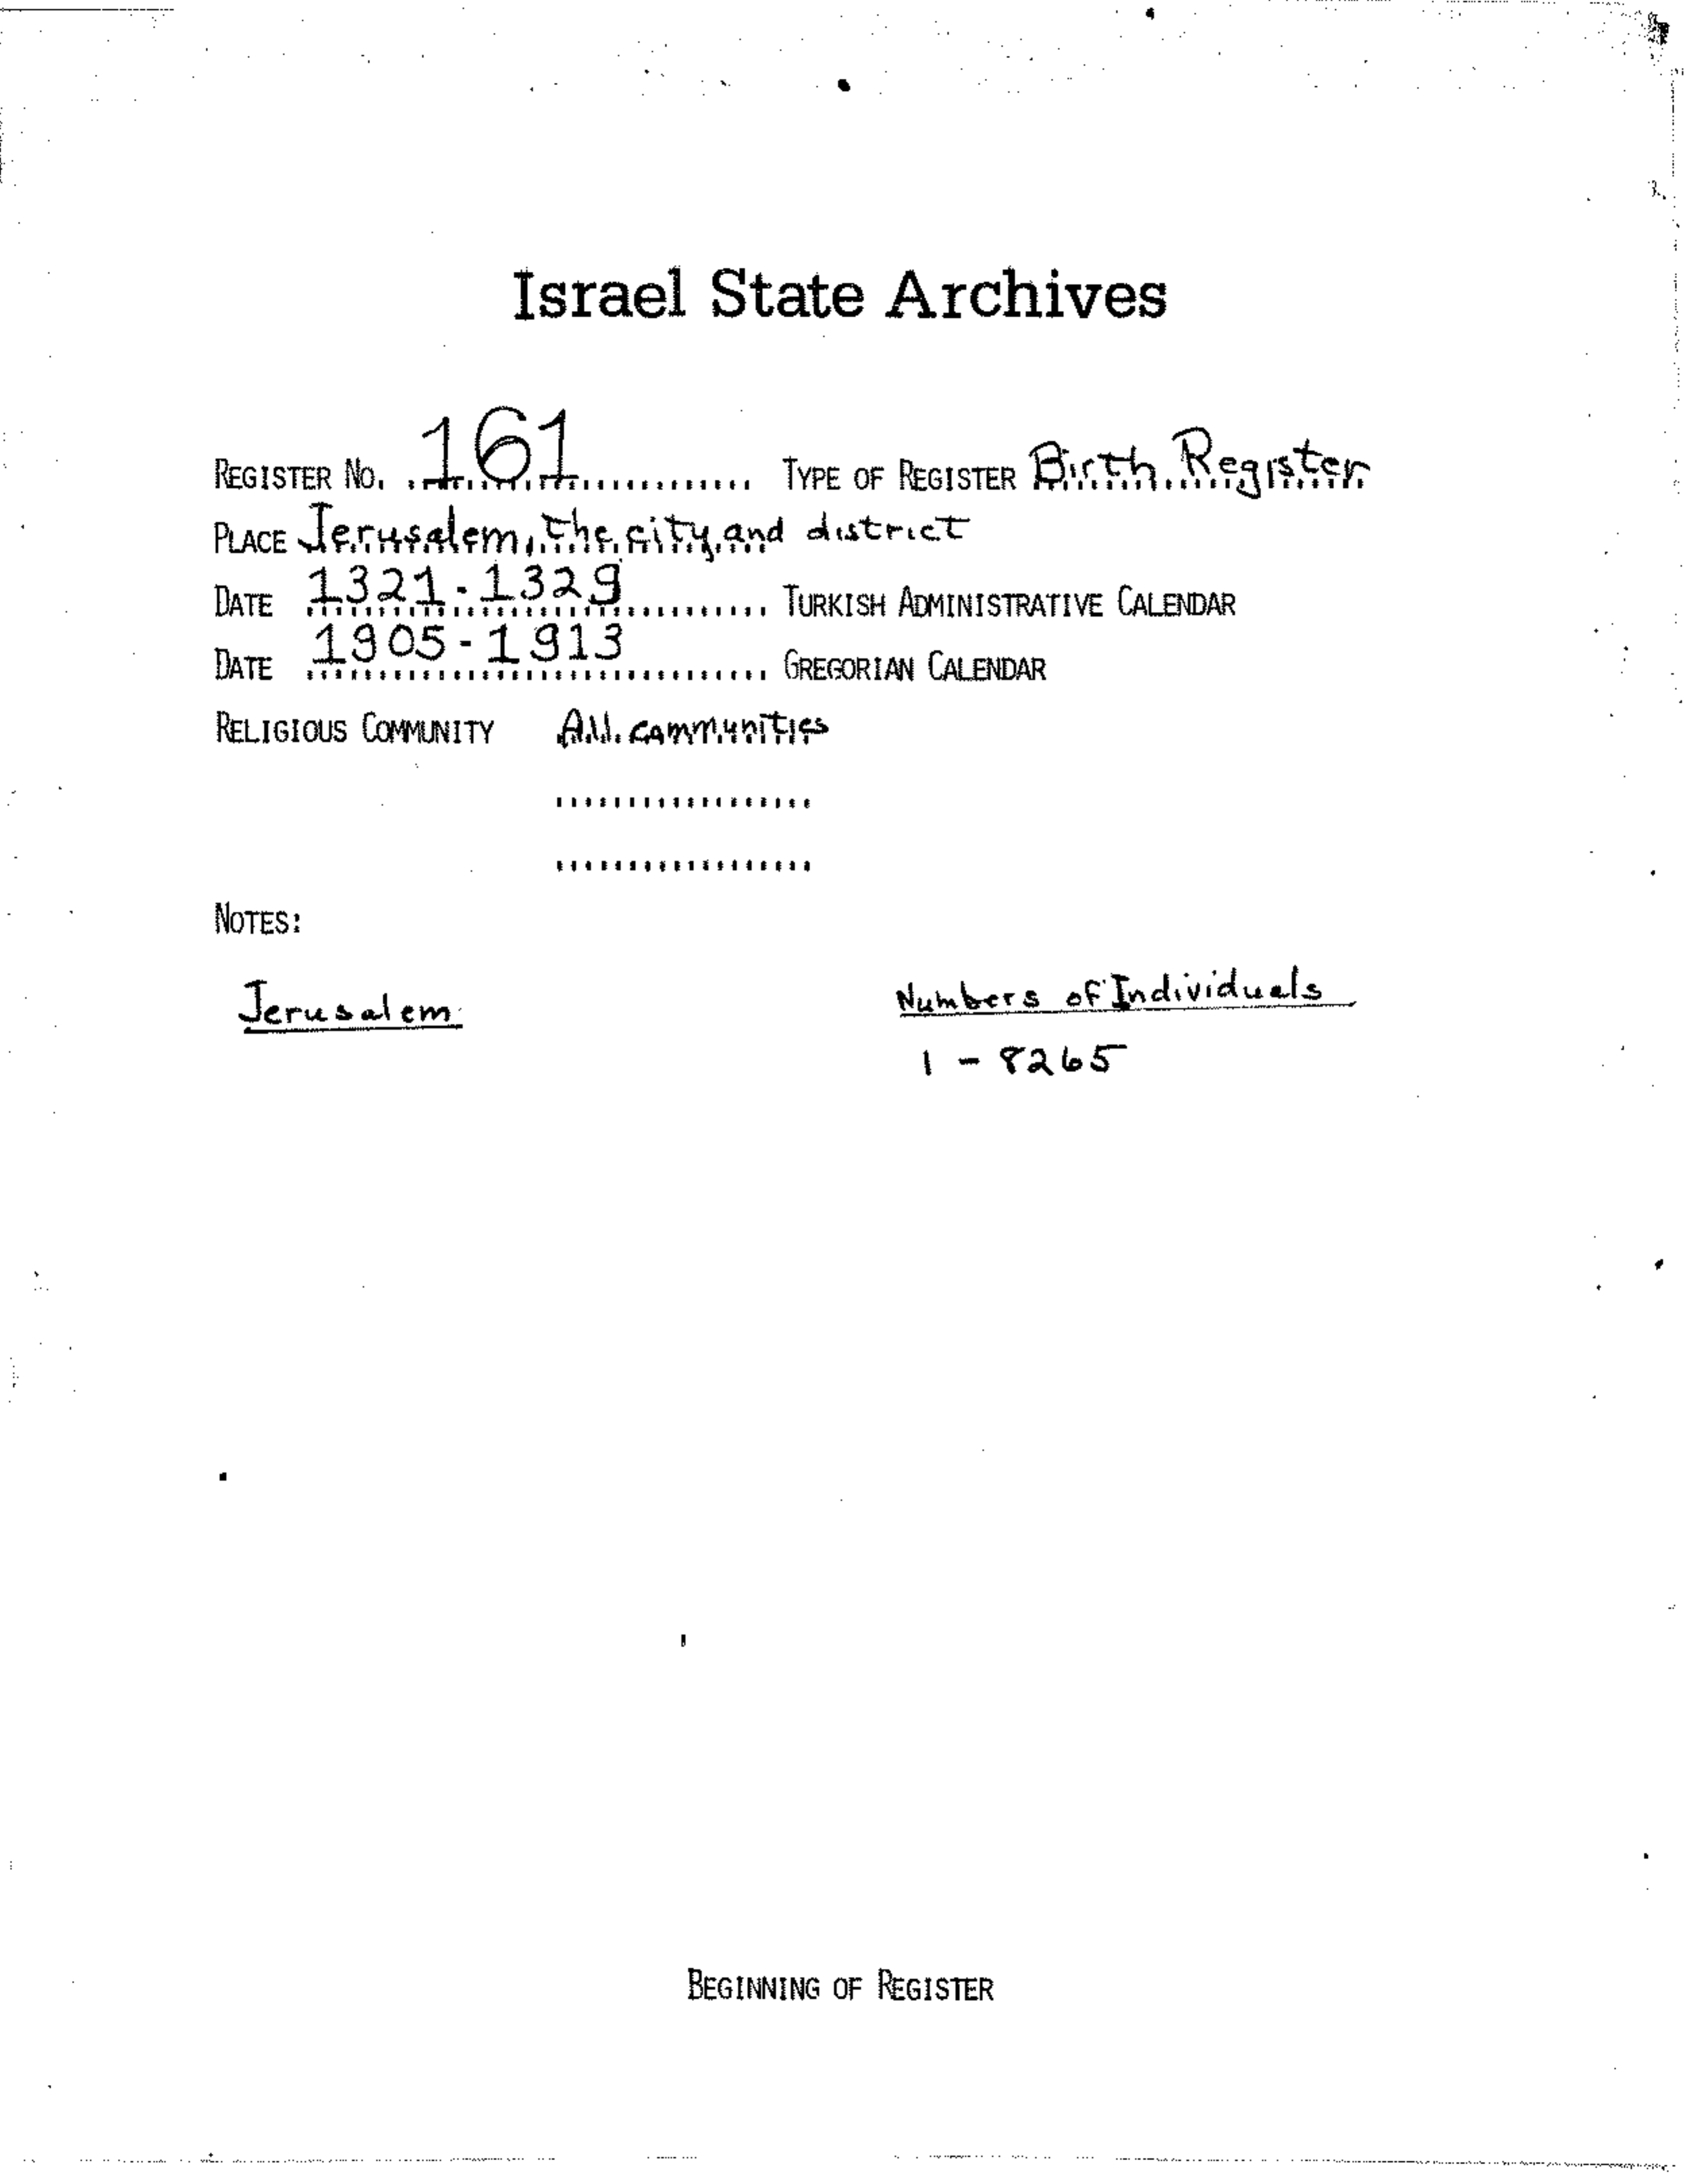 Israel State Archives
REGISTER No. 161 TYPE OF REGISTER Birth Register
PLACE Jerusalem, the city and district
DATE 1321-1329 TURKISH ADMINISTRATIVE CALENDAR
DATE 1905-1913 GREGORIAN CALENDAR
RELIGIOUS COMMUNITY All communities
NOTES:
Jerusalem Numbers of Individuals
1 - 8265
BEGINNING OF REGISTER